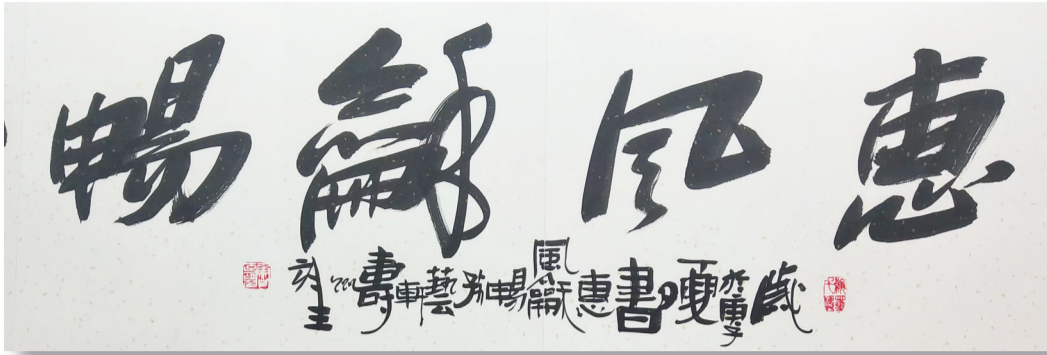 惠風龢暢
歲於庚子夏日書惠風龢暢於藝軒壽